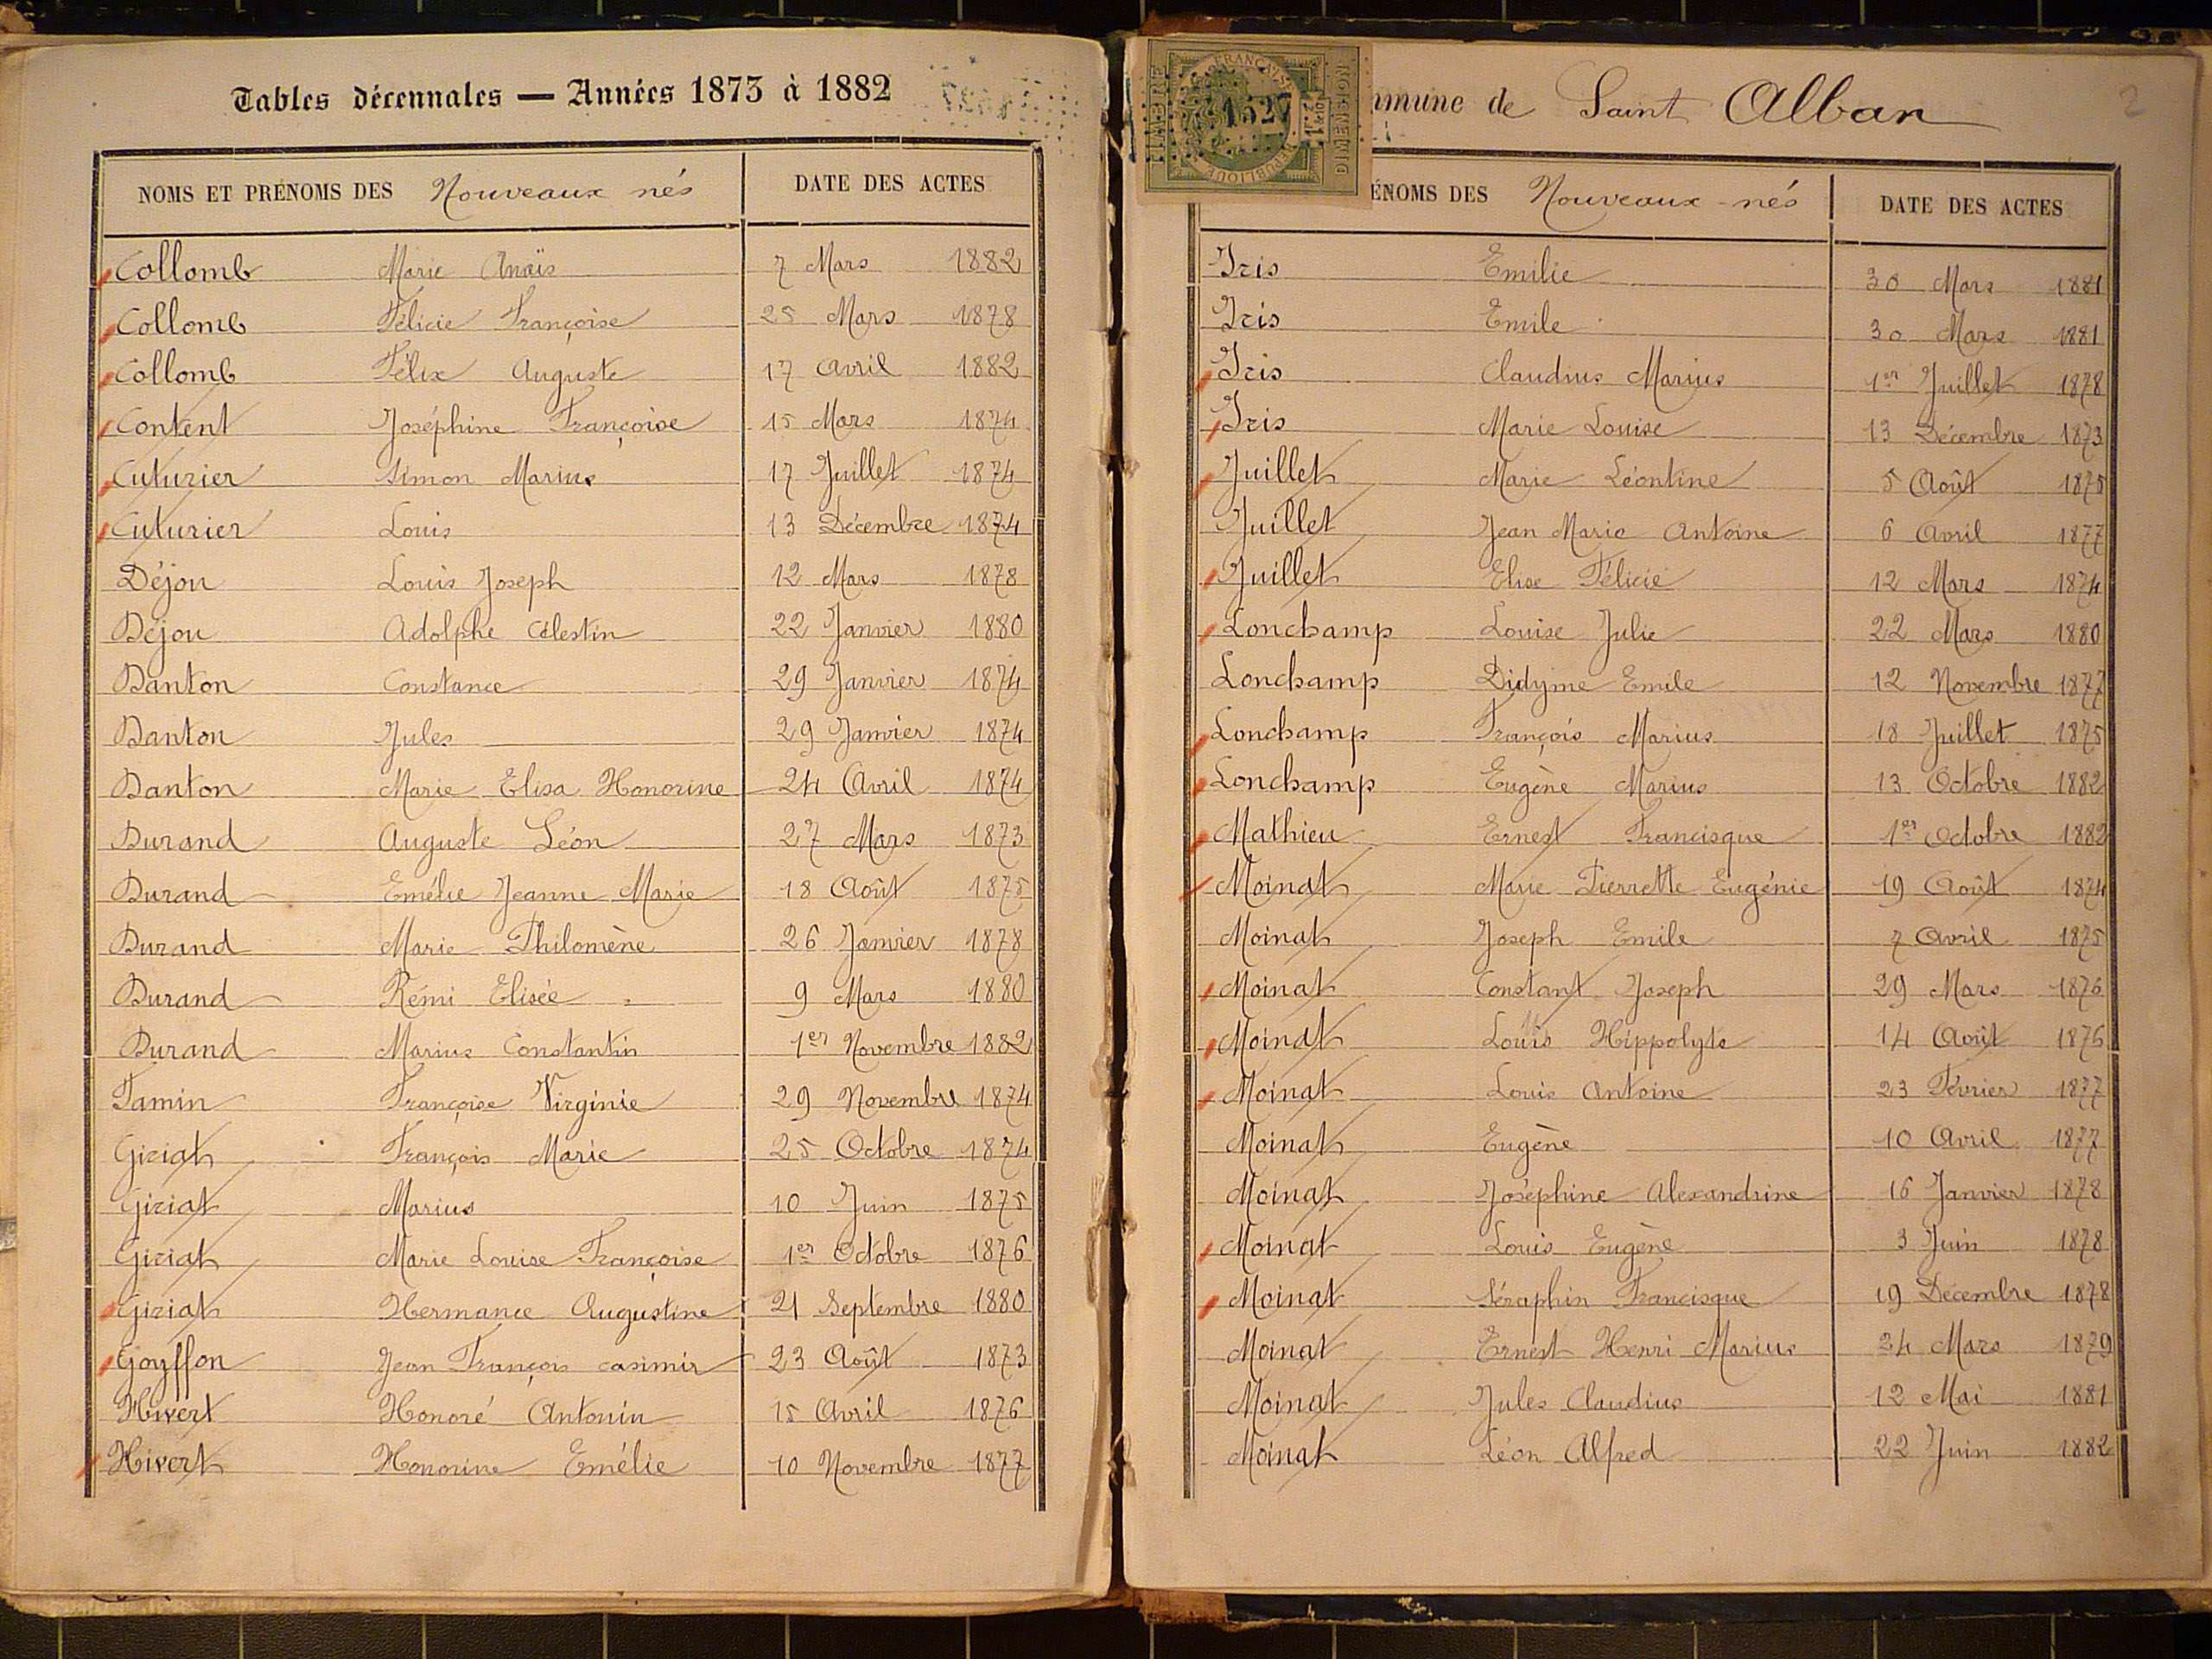 Tables décennales — Années 1873 à 1882
NOMS ET PRÉNOMS DES Nouveaux nés DATE DES ACTES
Collomb Marie Anaïs 7 Mars 1882
Collomb Félicie Françoise 25 Mars 1878
Collomb Félix Auguste 17 Avril 1882
Content Joséphine Françoise 15 Mars 1874
Cuturier Simon Marius 17 Juillet 1874
Cuturier Louis 13 Décembre 1874
Déjou Louis Joseph 12 Mars 1878
Déjou Adolphe Célestin 22 Janvier 1880
Danton Constance 29 Janvier 1874
Danton Jules 29 Janvier 1874
Danton Marie Elisa Honorine 24 Avril 1874
Durand Auguste Léon 27 Mars 1873
Durand Emélie Jeanne Marie 18 Août 1875
Durand Marie Philomène 26 Janvier 1878
Durand Rémi Elisée 9 Mars 1880
Durand Marius Constantin 1er Novembre 1882
Famin Françoise Virginie 29 Novembre 1874
Giriat François Marie 25 Octobre 1874
Giriat Marius 10 Juin 1875
Giriat Marie Louise Françoise 1er Octobre 1876
Giriat Hermance Augustine 21 Septembre 1880
Goyffon Jean François Casimir 23 Août 1873
Hivert Honoré Antonin 15 Avril 1876
Hivert Honorine Emélie 10 Novembre 1877
mmune de Saint Alban
2
ÉNOMS DES Nouveaux-nés DATE DES ACTES
Iris Emilie 30 Mars 1881
Iris Emile 30 Mars 1881
Iris Claudius Marius 1er Juillet 1878
Iris Marie Louise 13 Décembre 1873
Juillet Marie Léontine 5 Août 1875
Juillet Jean Marie Antoine 6 Avril 1877
Juillet Elise Félicie 12 Mars 1874
Lonchamp Louise Julie 22 Mars 1880
Lonchamp Didyme Emile 12 Novembre 1877
Lonchamp François Marius 18 Juillet 1875
Lonchamp Eugène Marius 13 Octobre 1882
Mathieu Ernest Francisque 1er Octobre 1882
Moinat Marie Pierrette Eugénie 19 Août 1874
Moinat Joseph Emile 7 Avril 1875
Moinat Constant Joseph 29 Mars 1876
Moinat Louis Hippolyte 14 Août 1876
Moinat Louis Antoine 23 Février 1877
Moinat Eugène 10 Avril 1877
Moinat Joséphine Alexandrine 16 Janvier 1878
Moinat Louis Eugène 3 Juin 1878
Moinat Séraphin Francisque 19 Décembre 1878
Moinat Ernest Henri Marius 24 Mars 1879
Moinat Jules Claudius 12 Mai 1881
Moinat Léon Alfred 22 Juin 1882